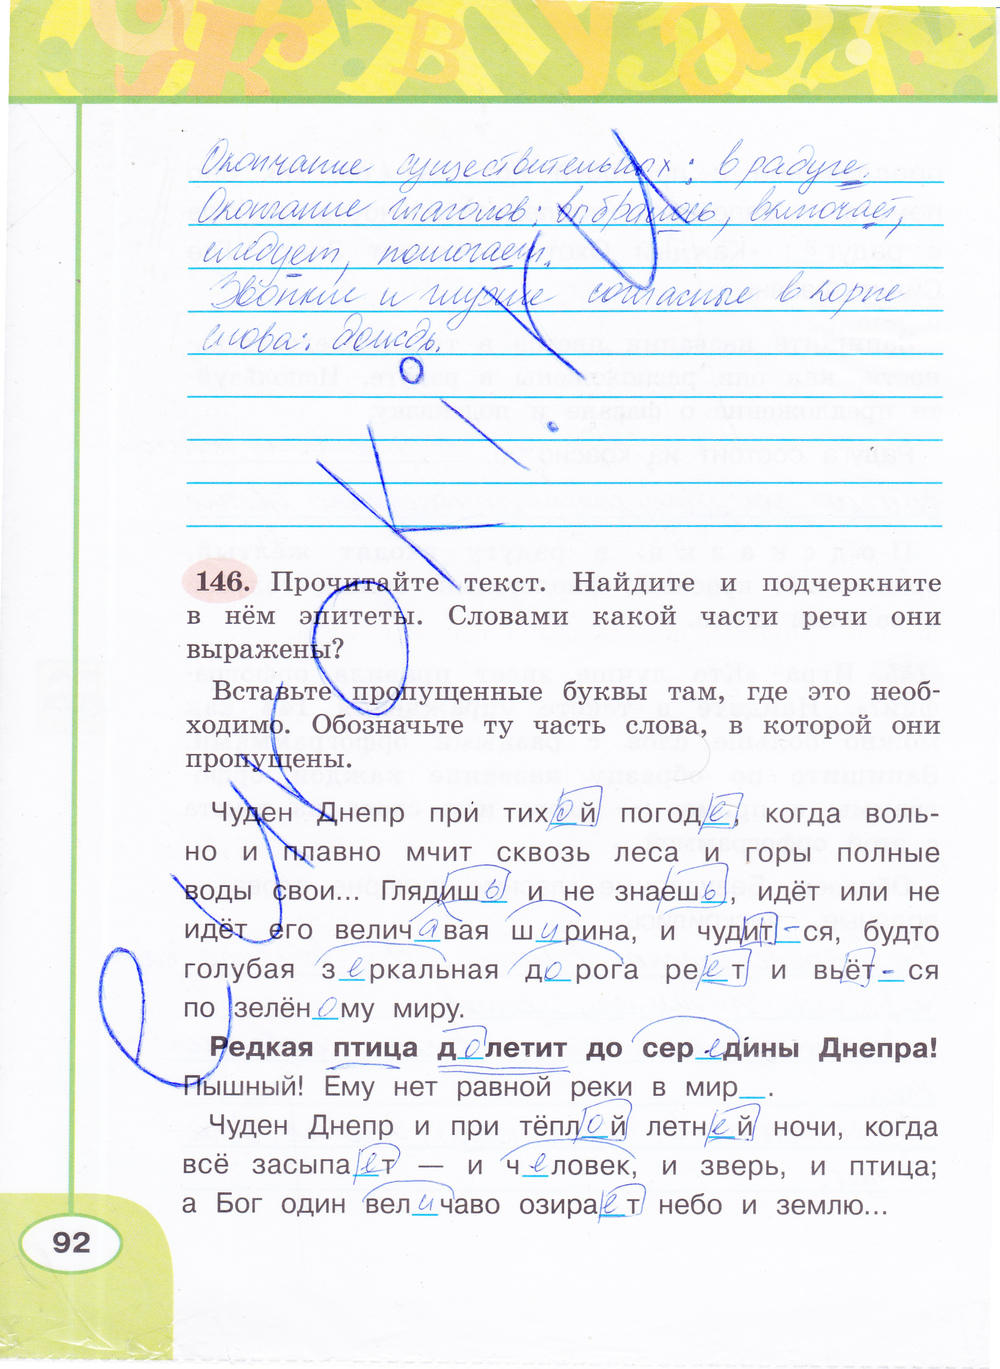 Окончание существительных: в радуге.
Окончание глаголов: выбралось, включает,
следует, помогает.
Звонкие и глухие согласные в корне
слова: дождь.
146. Прочитайте текст. Найдите и подчеркните
в нём эпитеты. Словами какой части речи они
выражены?
Вставьте пропущенные буквы там, где это необ-
ходимо. Обозначьте ту часть слова, в которой они
пропущены.
Чуден Днепр при тихой погоде, когда воль-
но и плавно мчит сквозь леса и горы полные
воды свои... Глядишь и не знаешь, идёт или не
идёт его величавая ширина, и чудит-ся, будто
голубая зеркальная дорога реет и вьёт-ся
по зелёному миру.
Редкая птица долетит до середины Днепра!
Пышный! Ему нет равной реки в мир_.
Чуден Днепр и при тёплой летней ночи, когда
всё засыпает — и человек, и зверь, и птица;
а Бог один величаво озирает небо и землю...
92
еуроки.ру